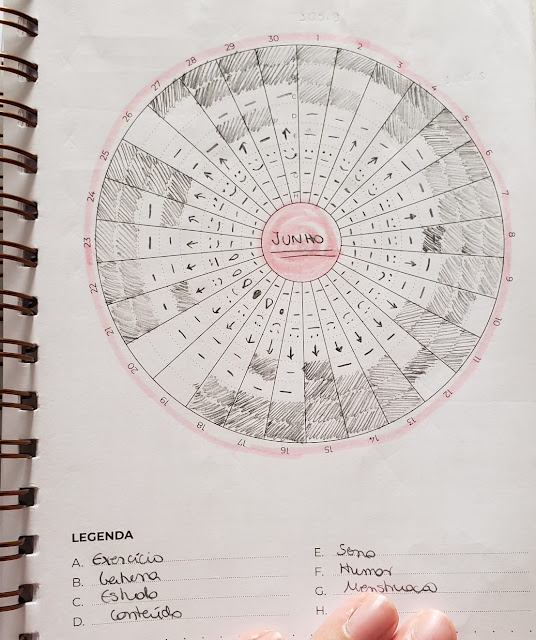 30 1 2 3 4 5 6 7 8 9 10 11 12 13 14 15 16 17 18 19 20 21 22 23 24 25 26 27 28 29
JUNHO
LEGENDA
A. Exercício
B. Leitura
C. Estudo
D. Conteúdo
E. Sono
F. Humor
G. Menstruação
H.